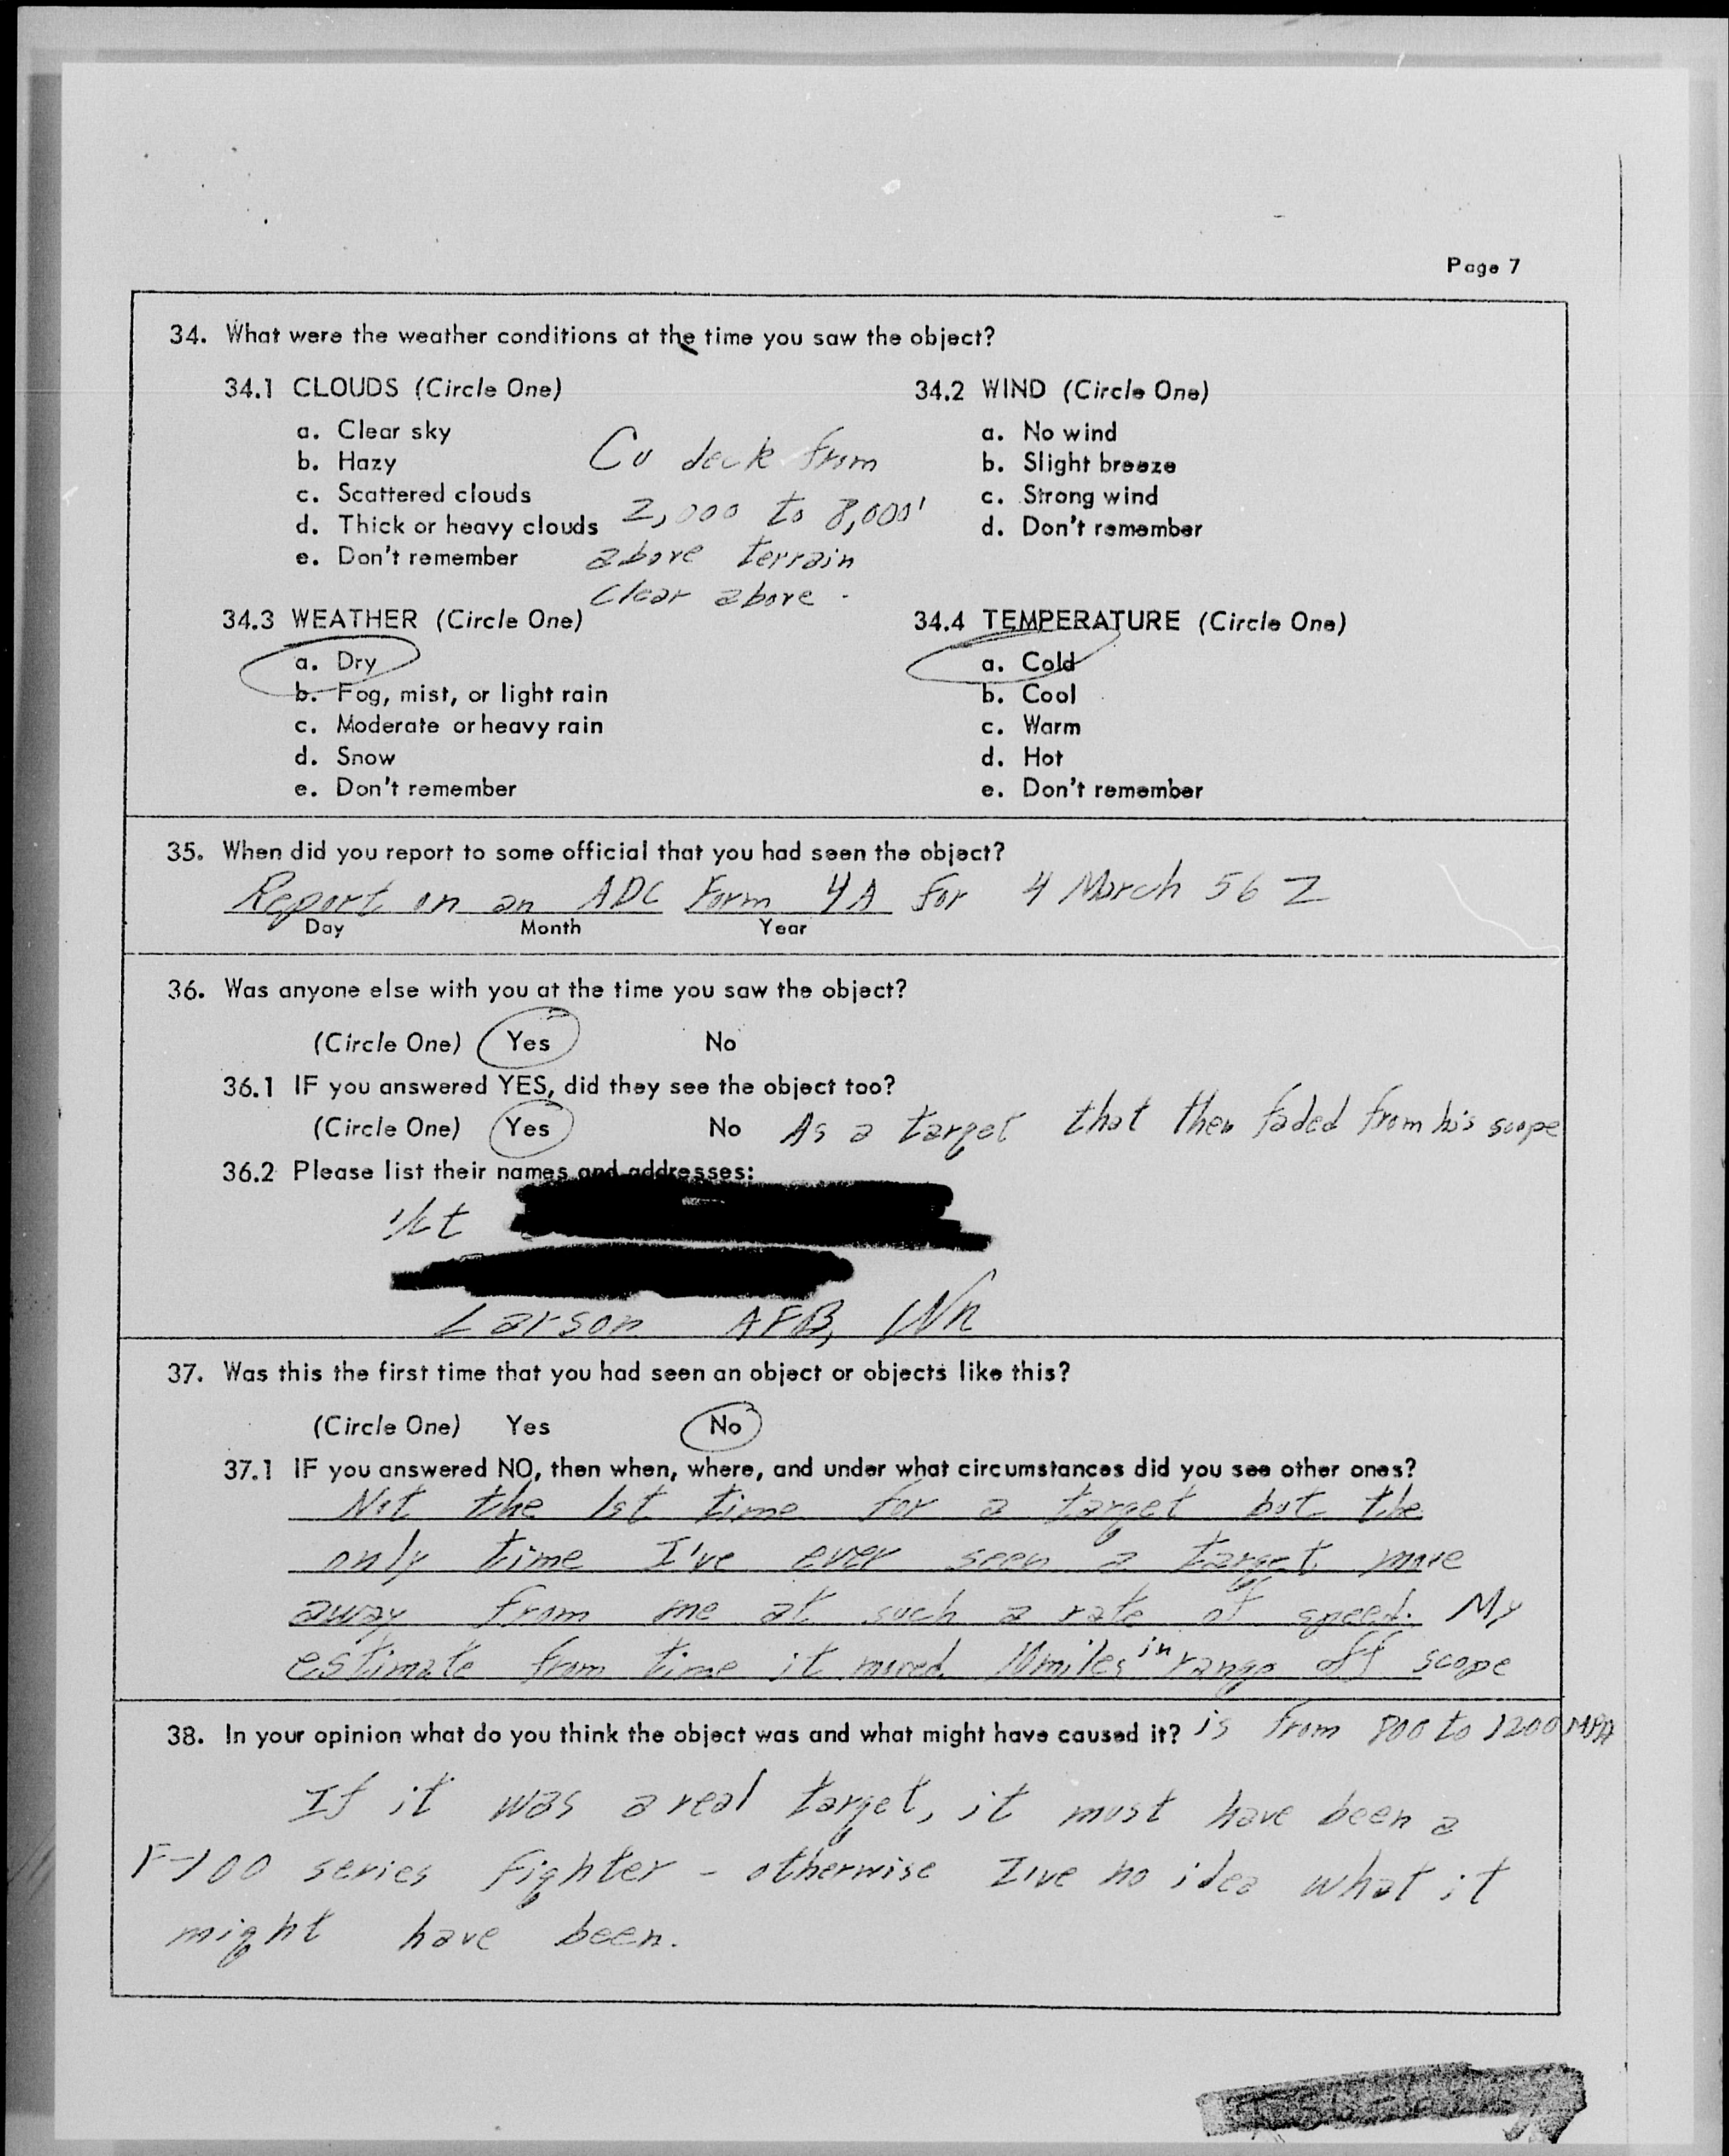 Page 7
34. What were the weather conditions at the time you saw the object?
34.1 CLOUDS (Circle One)
a. Clear sky
b. Hazy
c. Scattered clouds
d. Thick or heavy clouds
e. Don't remember
Cu deck from
2,000 to 8,000'
above terrain
Clear above.
34.2 WIND (Circle One)
a. No wind
b. Slight breeze
c. Strong wind
d. Don't remember
34.3 WEATHER (Circle One)
a. Dry
b. Fog, mist, or light rain
c. Moderate or heavy rain
d. Snow
e. Don't remember
34.4 TEMPERATURE (Circle One)
a. Cold
b. Cool
c. Warm
d. Hot
e. Don't remember
35. When did you report to some official that you had seen the object?
Report on an ADC Form 4A for 4 March 56 Z
Day Month Year
36. Was anyone else with you at the time you saw the object?
(Circle One) Yes No
36.1 IF you answered YES, did they see the object too?
(Circle One) Yes No As a target that then faded from his scope
36.2 Please list their names and addresses:
1/Lt
Larson AFB, Wn
37. Was this the first time that you had seen an object or objects like this?
(Circle One) Yes No
37.1 IF you answered NO, then when, where, and under what circumstances did you see other ones?
Not the 1st time for a target but the
only time I've ever seen a target move
away from me at such a rate of speed. My
estimate from time it moved 10 miles in range off scope
is from 800 to 1200 MPH
38. In your opinion what do you think the object was and what might have caused it?
If it was a real target, it must have been a
F-100 series fighter - otherwise I've no idea what it
might have been.